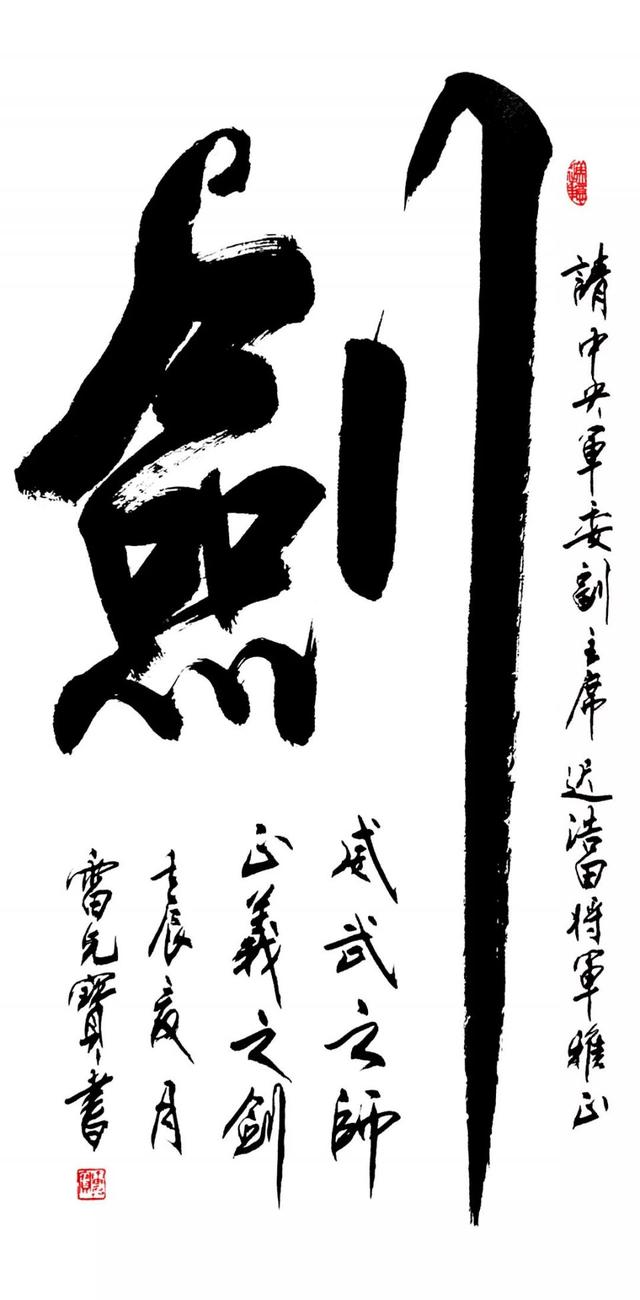 劍
請中央軍委副主席迟浩田将軍雅正
威武之師
正義之劍
壬辰夏月
雷元寶書